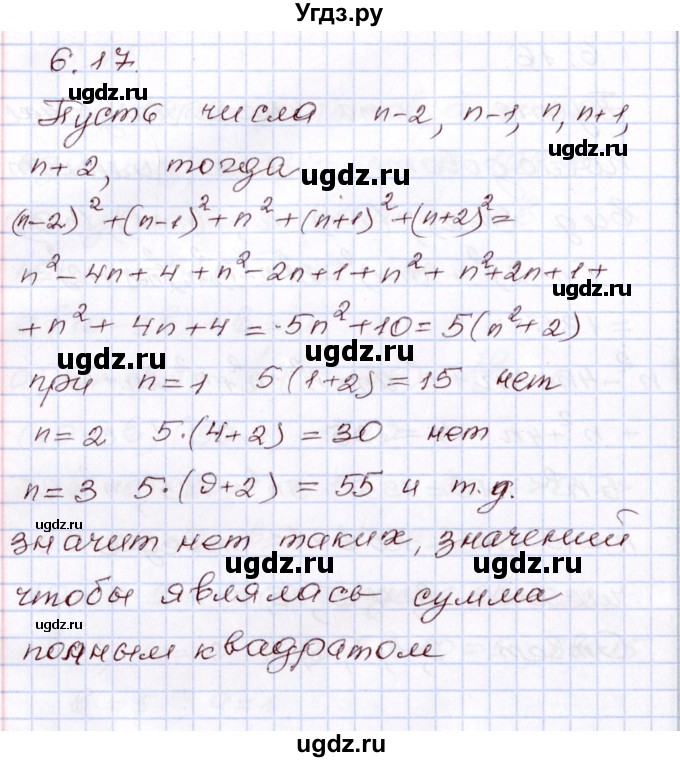 Угдз.ру
6.17.
ugdz.ru
Пусть числа n-2, n-1, n, n+1,
ugdz.ru
n+2, тогда
ugdz.ru
(n-2)² + (n-1)² + n² + (n+1)² + (n+2)² =
n² - 4n + 4 + n² - 2n + 1 + n² + n² + 2n + 1 +
ugdz.ru
+ n² + 4n + 4 = 5n² + 10 = 5(n² + 2)
ugdz.ru ugdz.ru
при n = 1 5(1+2) = 15 нет
n = 2 5·(4+2) = 30 нет
n = 3 5·(9+2) = 55 и т.д.
ugdz.ru
значит нет таких, значений
ugdz.ru ugdz.ru
чтобы являлась сумма
ugdz.ru
полным квадратом
ugdz.ru